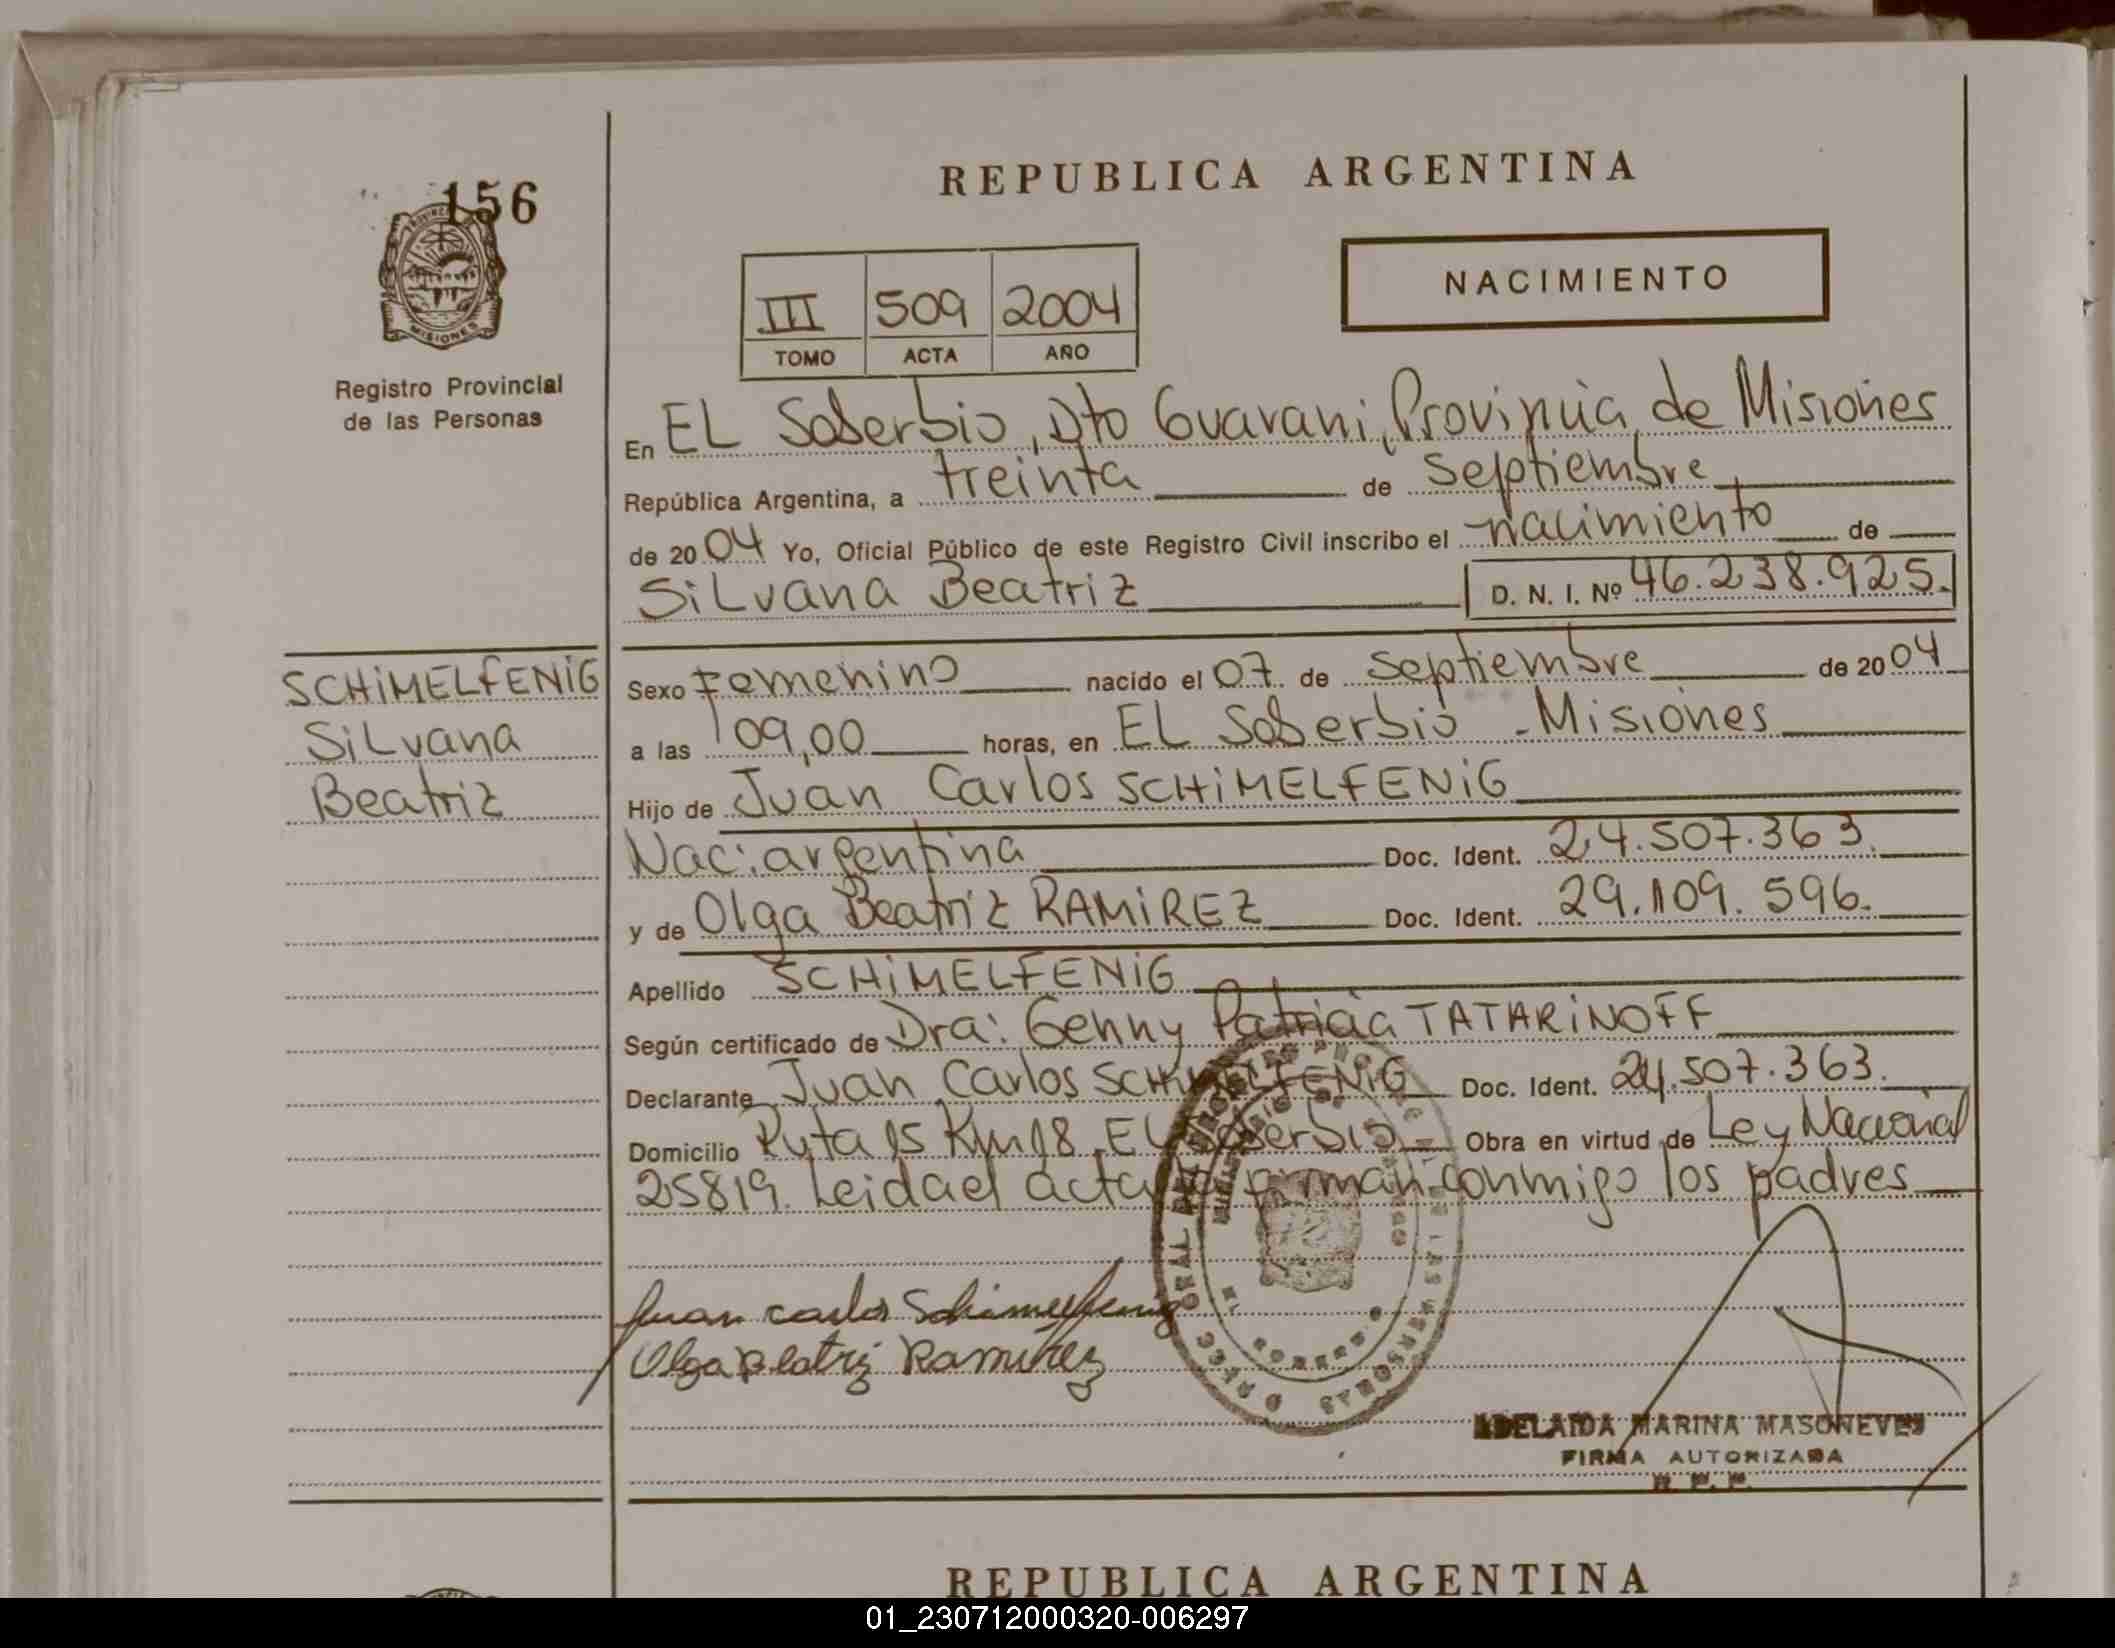 156
PROVINCIA DE MISIONES
Registro Provincial
de las Personas
REPUBLICA ARGENTINA
NACIMIENTO
III 509 2004
TOMO ACTA AÑO
En EL Soberbio, Dto Guarani, Provincia de Misiones
República Argentina, a treinta de Septiembre
de 2004 Yo, Oficial Público de este Registro Civil inscribo el nacimiento de
SiLvana Beatriz D. N. I. Nº 46.238.925.
SCHiMELFENiG
SiLvana
Beatriz
Sexo Femenino nacido el 07 de Septiembre de 2004
a las 09,00 horas, en EL Soberbio - Misiones
Hijo de Juan Carlos SCHiMELFENiG
Nac: argentina Doc. Ident. 24.507.363.
y de Olga Beatriz RAMiREZ Doc. Ident. 29.109.596.
Apellido SCHiMELFENiG
Según certificado de Dra: Genny Patricia TATARiNOFF
Declarante Juan Carlos SCHiMELFENiG Doc. Ident. 24.507.363.
Domicilio Ruta 15 Km 18 EL Soberbio Obra en virtud de Ley Nacional
25819. Leida el acta firman conmigo los padres
Juan carlos Schimelfenig
Olga Beatriz Ramirez
ADELAIDA MARINA MASONEVES
FIRMA AUTORIZADA
R. P. P.
REPUBLICA ARGENTINA
01_230712000320-006297